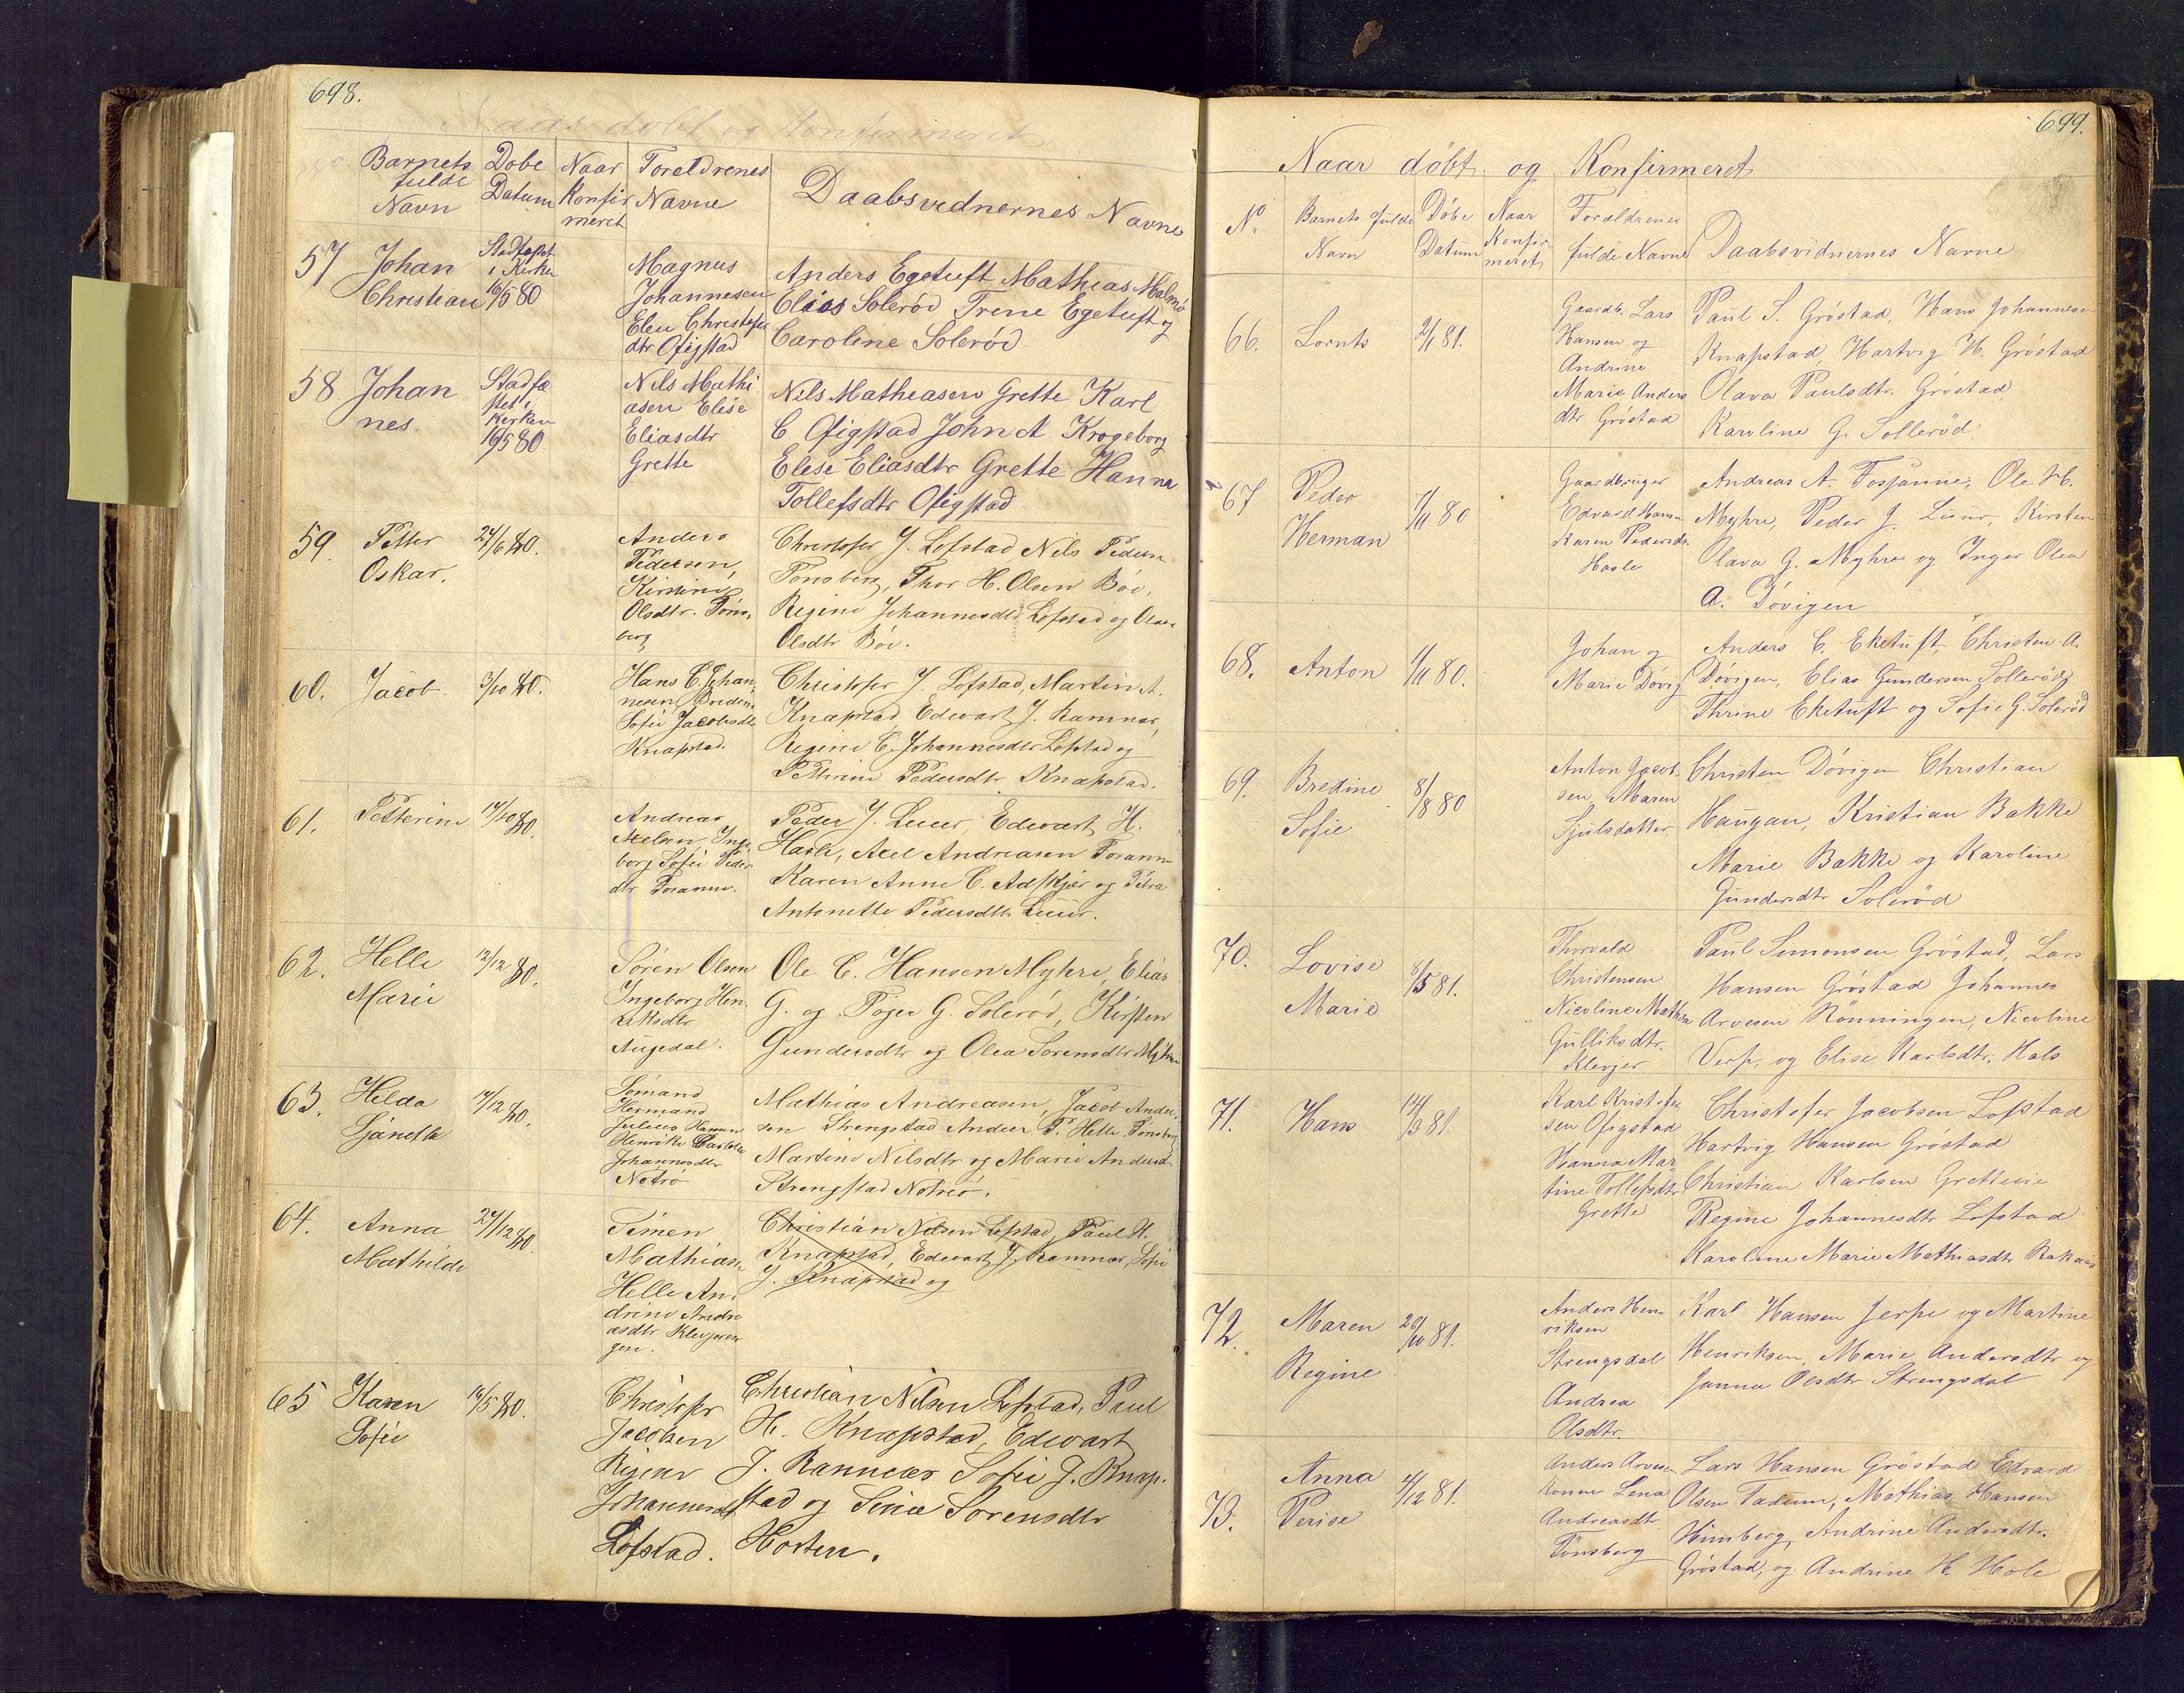 698.
Naar döbt og Konfirmeret
Barnets fulde Navn
Dobe Datum
Naar Konfir meret
Foreldrenes Navne
Daabsvednernes Navne
57 Johan Christian
Stadfæst i Kirken 16/5 80
Magnus Johannesen Elen Christofer dtr Ofigstad
Anders Egetuft Mathias Malmö
Elias Solerød Trene Egetuft og
Caroline Solerød
58 Johan nes
Stadfæ stet i Kerken 16/5 80
Nils Mathi asen Elise Eliasdtr Grette
Nils Matheasen Grette Karl
C Ofigstad John A Krogeborg
Elese Eliasdtr Grette Hanna
Tollefsdtr Ofigstad
59. Petter Oskar.
27/6 80.
Anders Pedersen, Kirstine Olsdtr. Töns. berg
Christofer J. Lofstad Nils Pedersn
Tonsberg, Thor H. Olsen Böe,
Regine Johannesdtr Lofstad og
Olsdtr Böe.
60. Jacob
3/10 80.
Hans C. Johan nesen Sofie Jacobsdtr Knapstad.
Christofer J. Lofstad, Martin A.
Knapstad, Edevart J. Ramnæs,
Regine C. Johannesdtr Lofstad og
Petterine Pedersdtr Knapstad.
61. Petterine
17/10 80.
Andreas Axelsen Inge borg Sofie Peder dtr
Peder J. Luur, Edevart H.
Hasle, Axel Andreasen
Karen Anne C. Adskjer og Petra
Antonette Pedersdtr Luur.
62. Helle Marie
12/12 80.
Sören Olsen Ingeborg Hen riksdtr Augedal.
Ole C. Hansen Myhre, Elias
G. og Töger G. Solerød, Kirsten
Gundersdtr og Olea Sorensdtr Myhre
63. Hilda Sjanette
19/12 80.
Sömand Hermand Julius Hansen Henrikke Johannesdtr Notrö
Mathias Andreasen, Jacob Ander.
sen Strengstad Andreas P. Helle, Tonsberg
Martine Nilsdtr og Marie Andersd
Strengstad Notrö.
64. Anna Mathilde
27/12 80.
Simen Mathiasn Helle An. drine Andre asdtr Klevjeren gen.
Christian Nilsen Lofstad, Paul H.
Knapstad, Edevart J. Ramnæs, Sofie
J. Knapstad og
65 Karen Sofie
16/5 80.
Christofer Jacobsen Regine Johannesdt Lofstad.
Christian Nilsen Lofstad, Paul
H. Knapstad, Edevart
J. Ramnæs Sofie J. Knap.
stad og Sina Sorensdtr
Horten.
699.
Naar döbt og Konfirmeret
No Barnets fulde Navn
Döbe Datum
Naar Konfir- meret
Forældrenes fulde Navne
Daabsvidnernes Navne
66. Lornts
2/1 81.
Gaardb. Lars Hansen og Andrine Marie Anders dtr Gröstad
Paul S. Gröstad, Hans Johannesen
Knapstad, Hartvig H. Gröstad
Olava Paulsdtr. Gröstad
Karoline G. Solleröd.
67 Peder Herman
7/11 80
Gaardbruger Edvard Hansn Karen Pedersdtr Hasle
Andreas A. Fosjanne, Ole H.
Myhre, Peder J. Luur, Kirsten
Olava G. Myhre og Inger Olea
A. Dövigen
68. Anton
1/11 80.
Johan og Marie Dövig
Anders C. Eketuft, Christen A.
Dövigen, Elias Gundersen Solleröd,
Thrine Eketuft og Sofie G. Soleröd
69. Bredine Sofie
8/8 80
Anton Jacob sen, Maren Sjulsdatter.
Christen Dövigen Christian
Haugan, Kristian Bakke
Marie Bakke og Karoline
Gundersdtr Soleröd
70. Lovise Marie
8/5 81.
Thorvald Christensen Nicoline Mathea Gulliksdtr. Klevjer
Paul Simonsen Gröstad, Lars
Hansen Gröstad Johannes
Arvesen Rönningen, Nicoline
Verp, og Elise Karlsdtr. Hals
71. Hans
14/3 81.
Karl Kristofer sen Ofigstad Hanna Mar tine Tollefsdtr Grette
Christofer Jacobsen Lofstad
Hartvig Hansen Gröstad
Christian Karlsen Gretteeie
Regine Johannesdtr Lofstad
Karoline Marie Mathiasdtr
72. Maren Regine
26/10 81.
Anders Hen- riksen Strengsdal Andrea Olsdtr.
Karl Hansen Jerpe og Martine
Henriksen, Marie Andersdtr og
Janna Olsdtr Strengsdal
73. Anna Perise
4/12 81.
Anders Arvesen Konen Lena Andreasdtr Tönsberg
Lars Hansen Gröstad Edvard
Olsen Tadum, Mathias Hansen
Himberg, Andrine Andersdtr.
Gröstad, og Andrine H. Hole